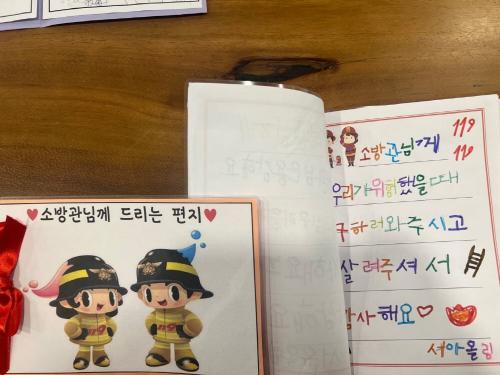 ♥소방관님께 드리는 편지♥
소방관님께 119
119
우리가위험했을때
구하러와주시고
살려주셔서
감사해요♡
서아올림